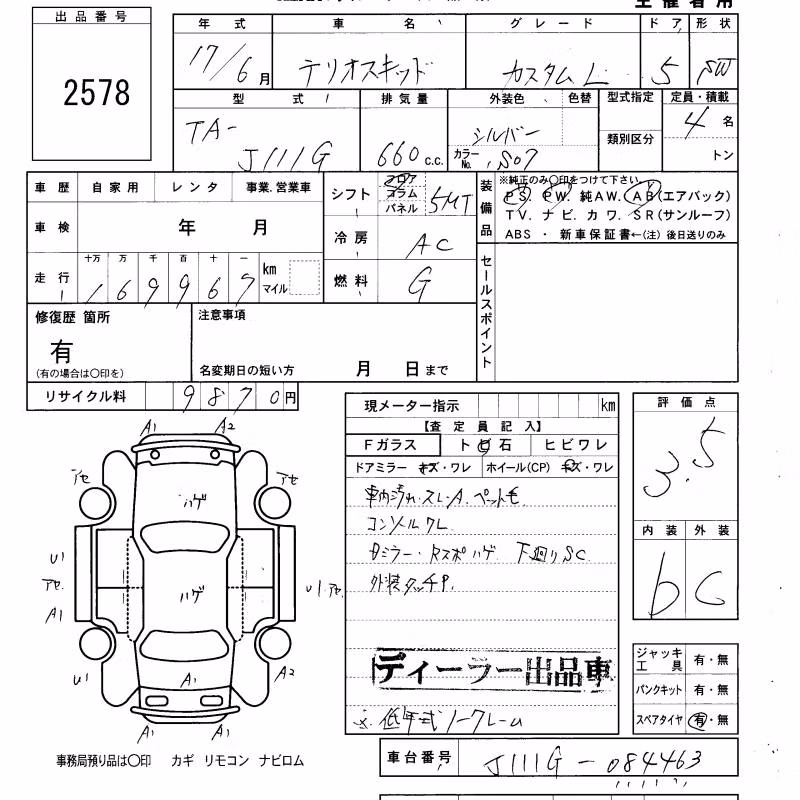 出品番号
2578
年式 車名 グレード ドア 形状
17/6月 テリオスキッド カスタムL 5 SW
型式 排気量 外装色 色替 型式指定 定員・積載
TA-
J111G 660 c.c. シルバー
カラーNo. S07
類別区分
4名
トン
車歴 自家用 レンタ 事業.営業車
車検 年 月
走行 十万 万 千 百 十 一
169967 km マイル
シフト フロア コラム パネル 5MT
冷房 AC
燃料 G
装備品
※純正のみ○印をつけて下さい
PS. PW. 純AW. AB(エアバック)
TV. ナビ. カワ. SR(サンルーフ)
ABS ・ 新車保証書←(注) 後日送りのみ
セールスポイント
修復歴 箇所
有
(有の場合は○印を)
注意事項
名変期日の短い方 月 日まで
リサイクル料 9870円
現メーター指示 km
【査定員記入】
Fガラス トビ石 ヒビワレ
ドアミラー キズ・ワレ ホイール(CP) キズ・ワレ
車内汚れ・スレ・A. ペット毛
コンソールワレ
ミラー・Rスポハゲ 下廻りSC
外装タッチP.
ディーラー出品車
※低年式ノークレーム
評価点
3.5
内装 外装
b C
ジャッキ工具 有・無
パンクキット 有・無
スペアタイヤ 有・無
A1 A2
アセ アセ
ハゲ
U1
アセ
A1
ハゲ
U1 アセ
U1
A1
A2
A1 A1
事務局預り品は○印 カギ リモコン ナビロム
車台番号 J111G-084463